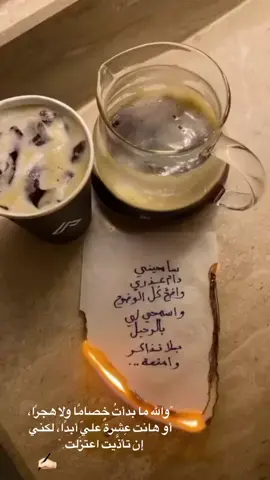 سامحيني
دام عذري
واضح كل الوضوح
واسمحي لي
بالرحيل
بلا نقاش
"والله ما بدأتُ خصامًا ولا هجرًا،
أو هانت عشرةٌ عليّ أبدًا، لكني
إن تأذّيت اعتزلت"